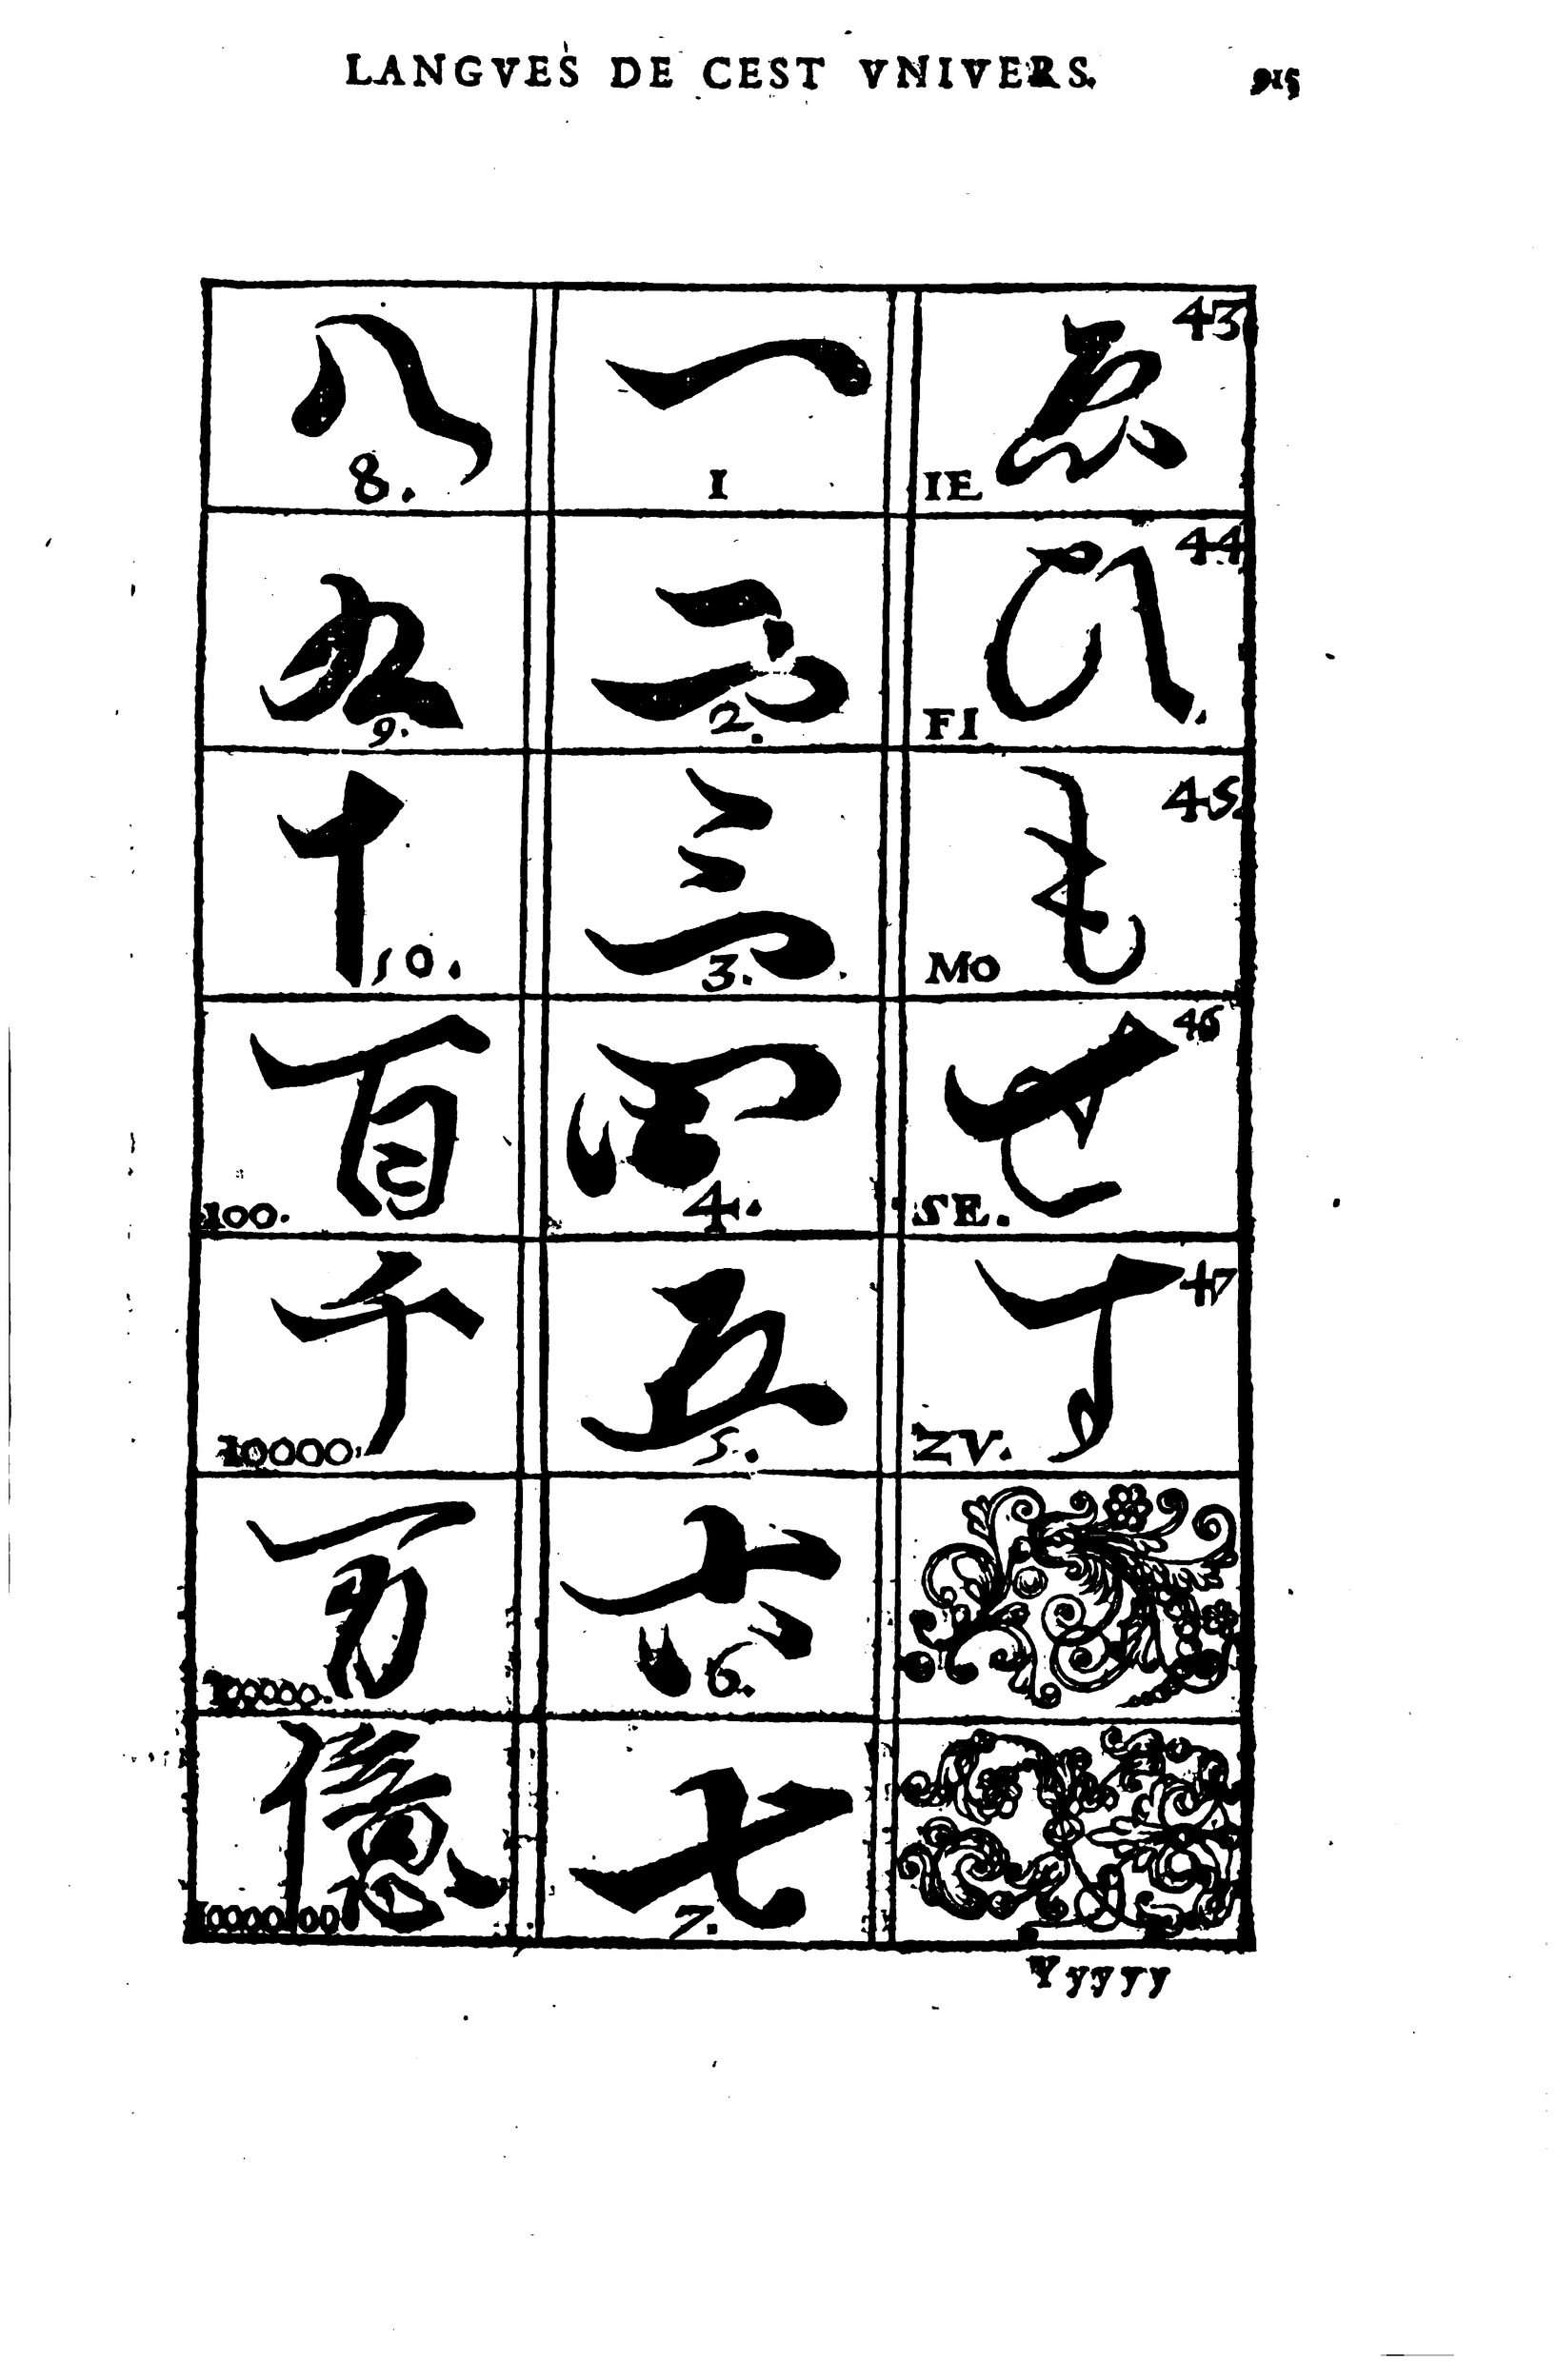 LANGVES DE CEST VNIVERS. 915
八 8. 一 I ゑ IE 43
九 9. 二 2. ひ FI 44
十 10. 三 3. も MO 45
百 100. 四 4. せ SE. 46
千 10000. 五 5. す ZV. 47
万 100000. 六 6.
億 七 7.
Yyyyy